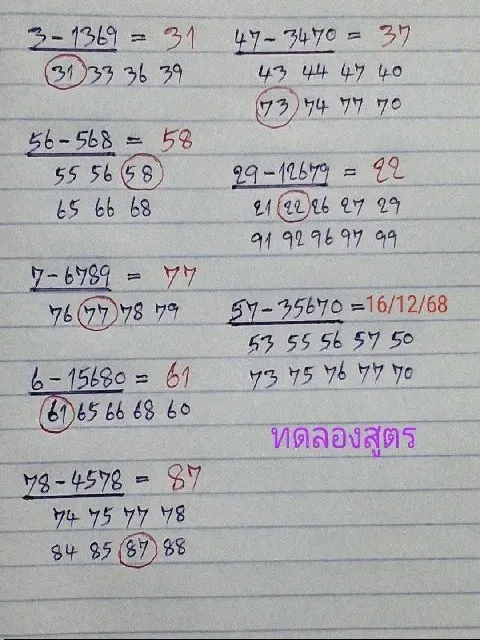 3-1369 = 31
31 33 36 39
56-568 = 58
55 56 58
65 66 68
7-6789 = 77
76 77 78 79
6-15680 = 61
61 65 66 68 60
78-4578 = 87
74 75 77 78
84 85 87 88
47-3470 = 37
43 44 47 40
73 74 77 70
29-12679 = 22
21 22 26 27 29
91 92 96 97 99
57-35670 =16/12/68
53 55 56 57 50
73 75 76 77 70
ทดลองสูตร